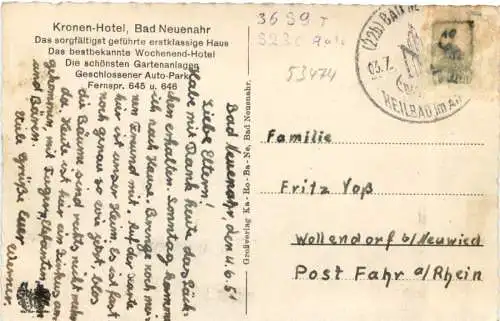 Kronen-Hotel, Bad Neuenahr
Das sorgfältigst geführte erstklassige Haus
Das bestbekannte Wochenend-Hotel
Die schönsten Gartenanlagen
Geschlossener Auto-Park
Fernspr. 645 u. 646
Bad Neuenahr, den 4.6.51
Liebe Eltern!
Habe mit Dank heute das Päck-
chen erhalten. Sonntag komme
ich nach Hause. Bringe noch mei-
nen Freund mit. Auf der Karte
hier ist unser Heim. Es ist fast
noch genau so wie jetzt, blos
die Bäume sind nicht mehr
da. Heute ist hier ein Zirkus an-
gekommen, mit Tigern, Elefanten
und Bären.
Viele Grüße Euer
Werner.
Großverlag Ka-Ro-Ba-Ne, Bad Neuenahr.
3659
53474
(22b) BAD
03.7.
HEILBAD im Ahr
Familie
Fritz Voß
Wollendorf b/Neuwied
Post Fahr a/Rhein